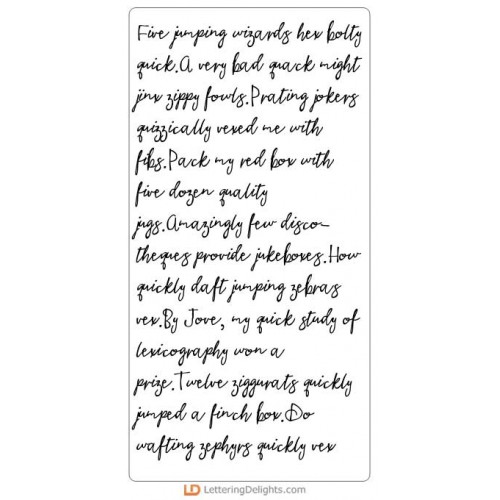 Five jumping wizards hex bolty
quick.A very bad quack might
jinx zippy fowls.Prating jokers
quizzically vexed me with
fibs.Pack my red box with
five dozen quality
jugs.Amazingly few disco-
theques provide jukeboxes.How
quickly daft jumping zebras
vex.By Jove, my quick study of
lexicography won a
prize.Twelve ziggurats quickly
jumped a finch box.Do
wafting zephyrs quickly vex
LD LetteringDelights.com